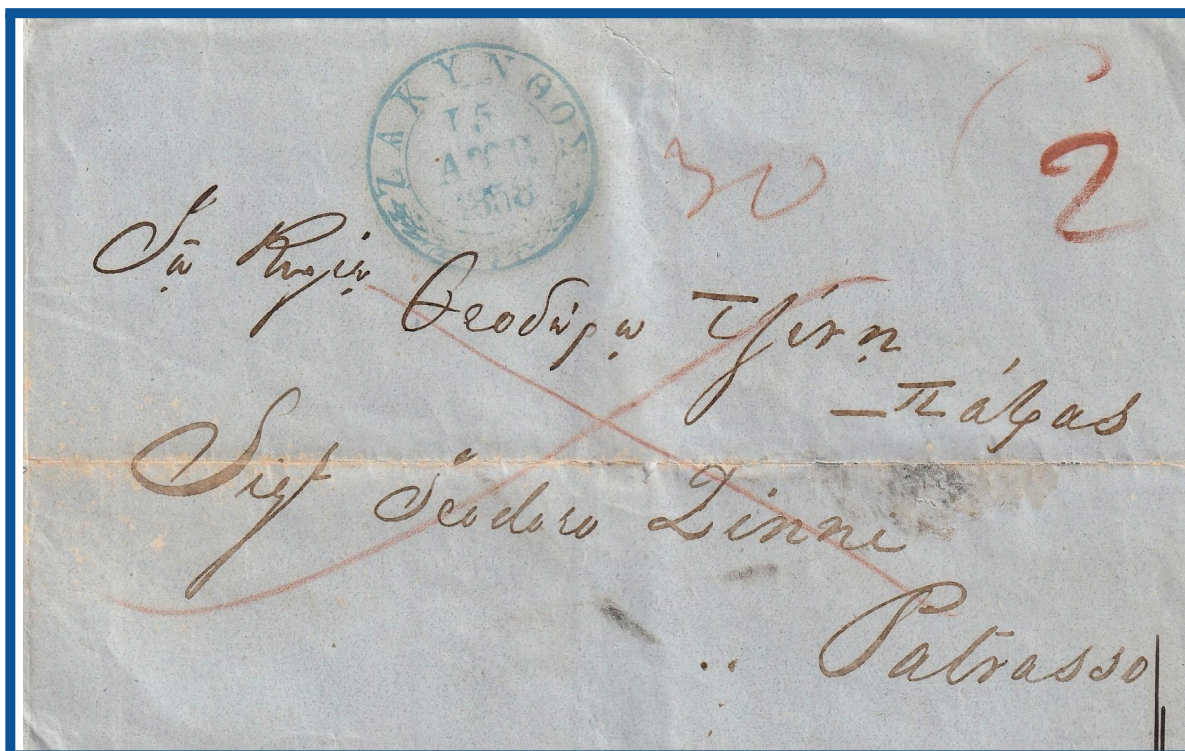 ΖΑΚΥΝΘΟΣ
15
1858
30
2
Τῷ Κυρίῳ
Θεοδώρῳ Τζίνῃ
Πάτρας
Sigr Teodoro Zinni
Patrasso